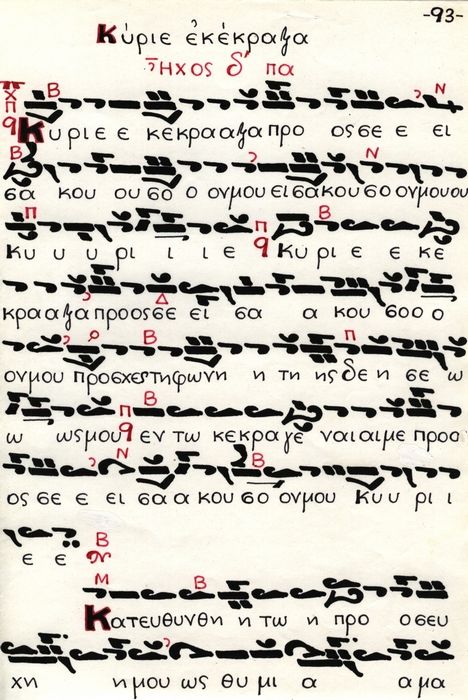 -93-
Κύριε ἐκέκραξα
Ἦχος δ' πα
Κ υ ρ ι ε ε κε κρα α ξα προ ος σε ε ει
σα κου ου σο ο ου μου ει σα κου σο ου μου ου
Κυ υ υ ρι ι ι ε Κυ ρι ε ε κε
κρα α ξα προ ος σε ει σα α κου σο ο ο
ου μου προσχες τη φωνη η τη ης δε η σε ω
ω ως μου εν τω κε κρα γε ναι αι με προ ο
ος σε ε ει σα α κου σο ου μου Κυ υ ρι ι
ε ε
Κα τευ θυν θη η τω η προ ο σευ
χη η μου ως θυ μι α α μα